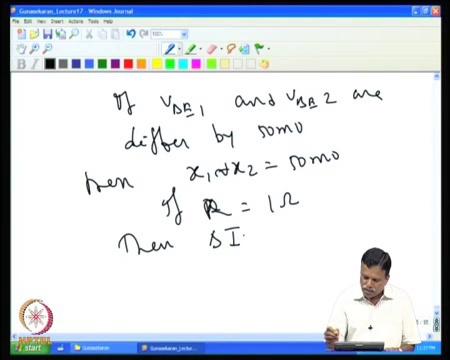 Gunasekaran_Lecture17 - Windows Journal
File Edit View Insert Actions Tools Help
If VBE1 and VBE2 are
differ by 50mV
then x1 ~ x2 = 50mV
If R = 1Ω
Then ΔI
NPTEL
start Gunasekaran Gunasekaran_Lectu...